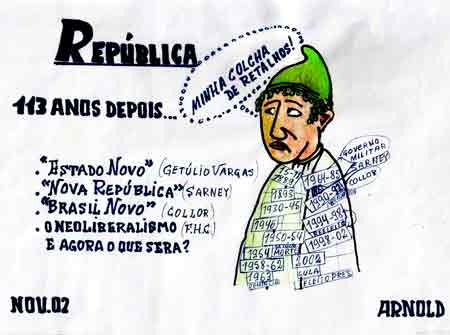 REPÚBLICA
MINHA COLCHA
DE RETALHOS!
113 ANOS DEPOIS...
."ESTADO NOVO" (GETÚLIO VARGAS)
."NOVA REPÚBLICA" (SARNEY)
."BRASIL NOVO" (COLLOR)
. O NEOLIBERALISMO (F.H.C)
E AGORA O QUE SERA?
GOVERNO
MILITAR
SARNEY
COLLOR
1893
1930-45
1946
1950-54
1954 MORTO
1958-62
1963
1964-85
1990-92
1994-98
REELEITO
1998-02
2002
LULA
ELEITO PRES.
NOV.02
ARNOLD